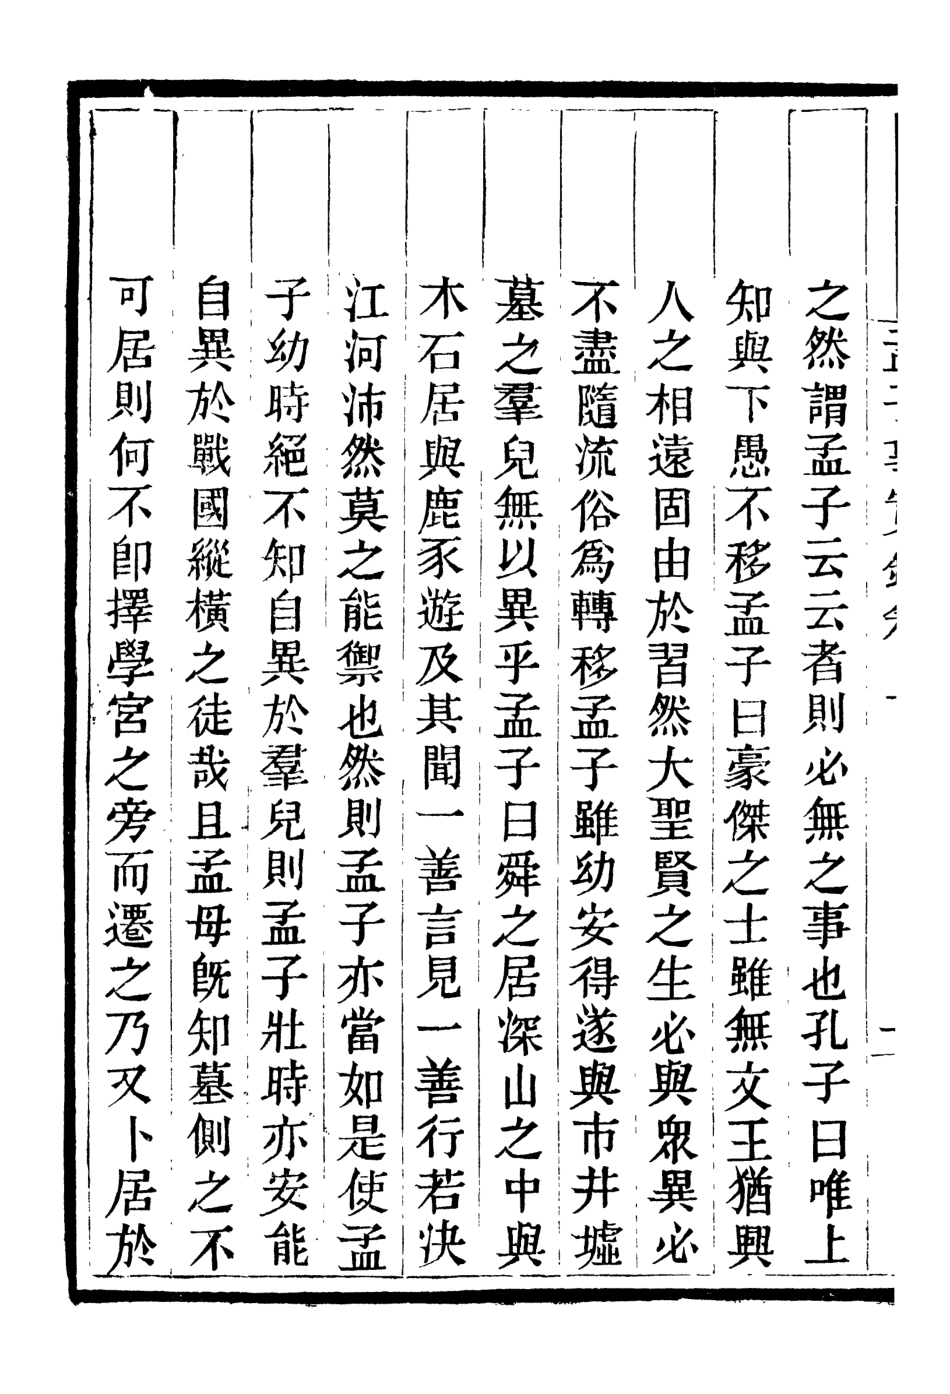 之然謂孟子云云者則必無之事也孔子曰唯上
知與下愚不移孟子曰豪傑之士雖無文王猶興
人之相遠固由於習然大聖賢之生必與眾異必
不盡隨流俗爲轉移孟子雖幼安得遂與市井墟
墓之羣兒無以異乎孟子曰舜之居深山之中與
木石居與鹿豕遊及其聞一善言見一善行若決
江河沛然莫之能禦也然則孟子亦當如是使孟
子幼時絕不知自異於羣兒則孟子壯時亦安能
自異於戰國縱橫之徒哉且孟母旣知墓側之不
可居則何不卽擇學宮之旁而遷之乃又卜居於